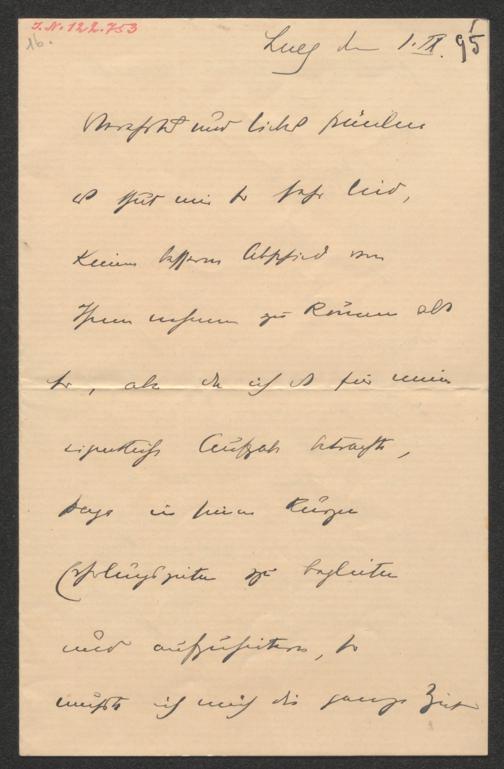 I.N. 122.753
16.
Lueg den 1. IX. 95
Verehrtes und liebes Fräulein
es thut mir so sehr leid,
keinen besseren Abschied von
Ihnen nehmen zu können als
so, aber da ich es für meine
eigentliche Aufgabe betrachte,
Papa in seinen kurzen
Erholungszeiten zu begleiten
und aufzuheitern, so
mußte ich mich die ganze Zeit